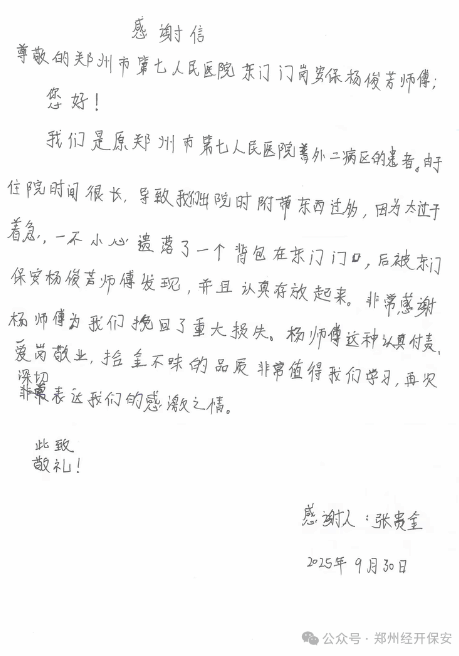 感谢信
尊敬的郑州市第七人民医院东门门岗安保杨俊芳师傅；
您好！
我们是原郑州市第七人民医院普外二病区的患者。由于
住院时间很长，导致我们出院时附带东西过多，因为太过于
着急，一不小心遗落了一个背包在东门门口，后被东门
保安杨俊芳师傅发现，并且认真存放起来。非常感谢
杨师傅为我们挽回了重大损失。杨师傅这种认真付责，
爱岗敬业，拾金不昧的品质非常值得我们学习，再次
深切
表达我们的感激之情。
此致
敬礼！
感谢人：张贵全
2025年9月30日
公众号·郑州经开保安